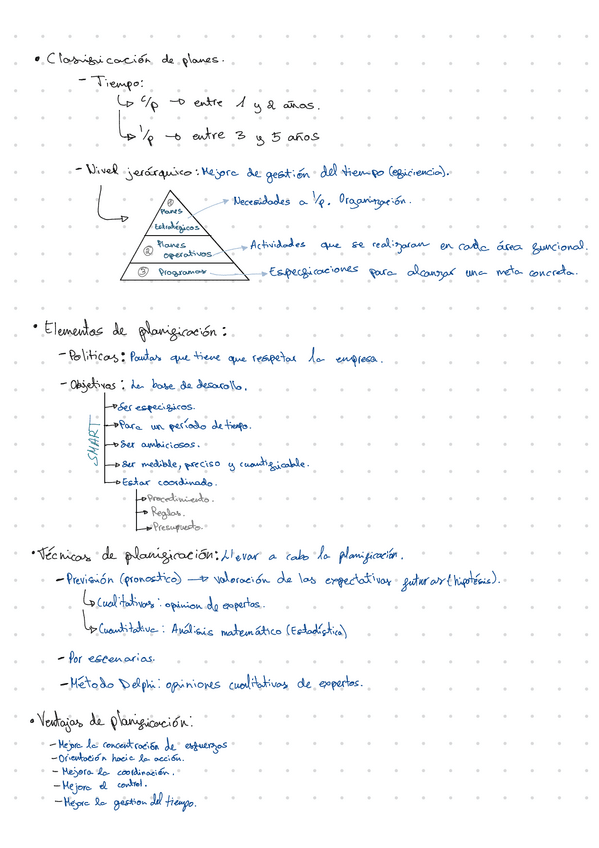 • Clasificación de planes.
- Tiempo:
↳ c/p → entre 1 y 2 años.
↳ l/p → entre 3 y 5 años
- Nivel jerárquico: Mejora de gestión del tiempo (eficiencia).
① Planes Estratégicos → Necesidades a l/p. Organización.
② Planes operativos → Actividades que se realizaran en cada área funcional.
③ Programas → Especificaciones para alcanzar una meta concreta.
• Elementos de planificación:
- Políticas: Pautas que tiene que respetar la empresa.
- Objetivos: La base de desarollo.
SMART
→ Ser específicos.
→ Para un período de tiempo.
→ Ser ambiciosos.
→ Ser medible, preciso y cuantificable.
→ Estar coordinado.
→ Procedimiento.
→ Reglas.
→ Presupuesto.
• Técnicas de planificación: Llevar a cabo la planificación.
- Previsión (pronostico) → valoración de las expectativas futuras (hipótesis).
↳ Cualitativas: opinion de expertos.
↳ Cuantitativa: Análisis matemático (Estadística)
- Por escenarios.
- Método Delphi: opiniones cualitativas de expertos.
• Ventajas de planificación:
- Mejora la concentración de esfuerzos
- Orientación hacia la acción.
- Mejora la coordinación.
- Mejora el control.
- Mejora la gestion del tiempo.